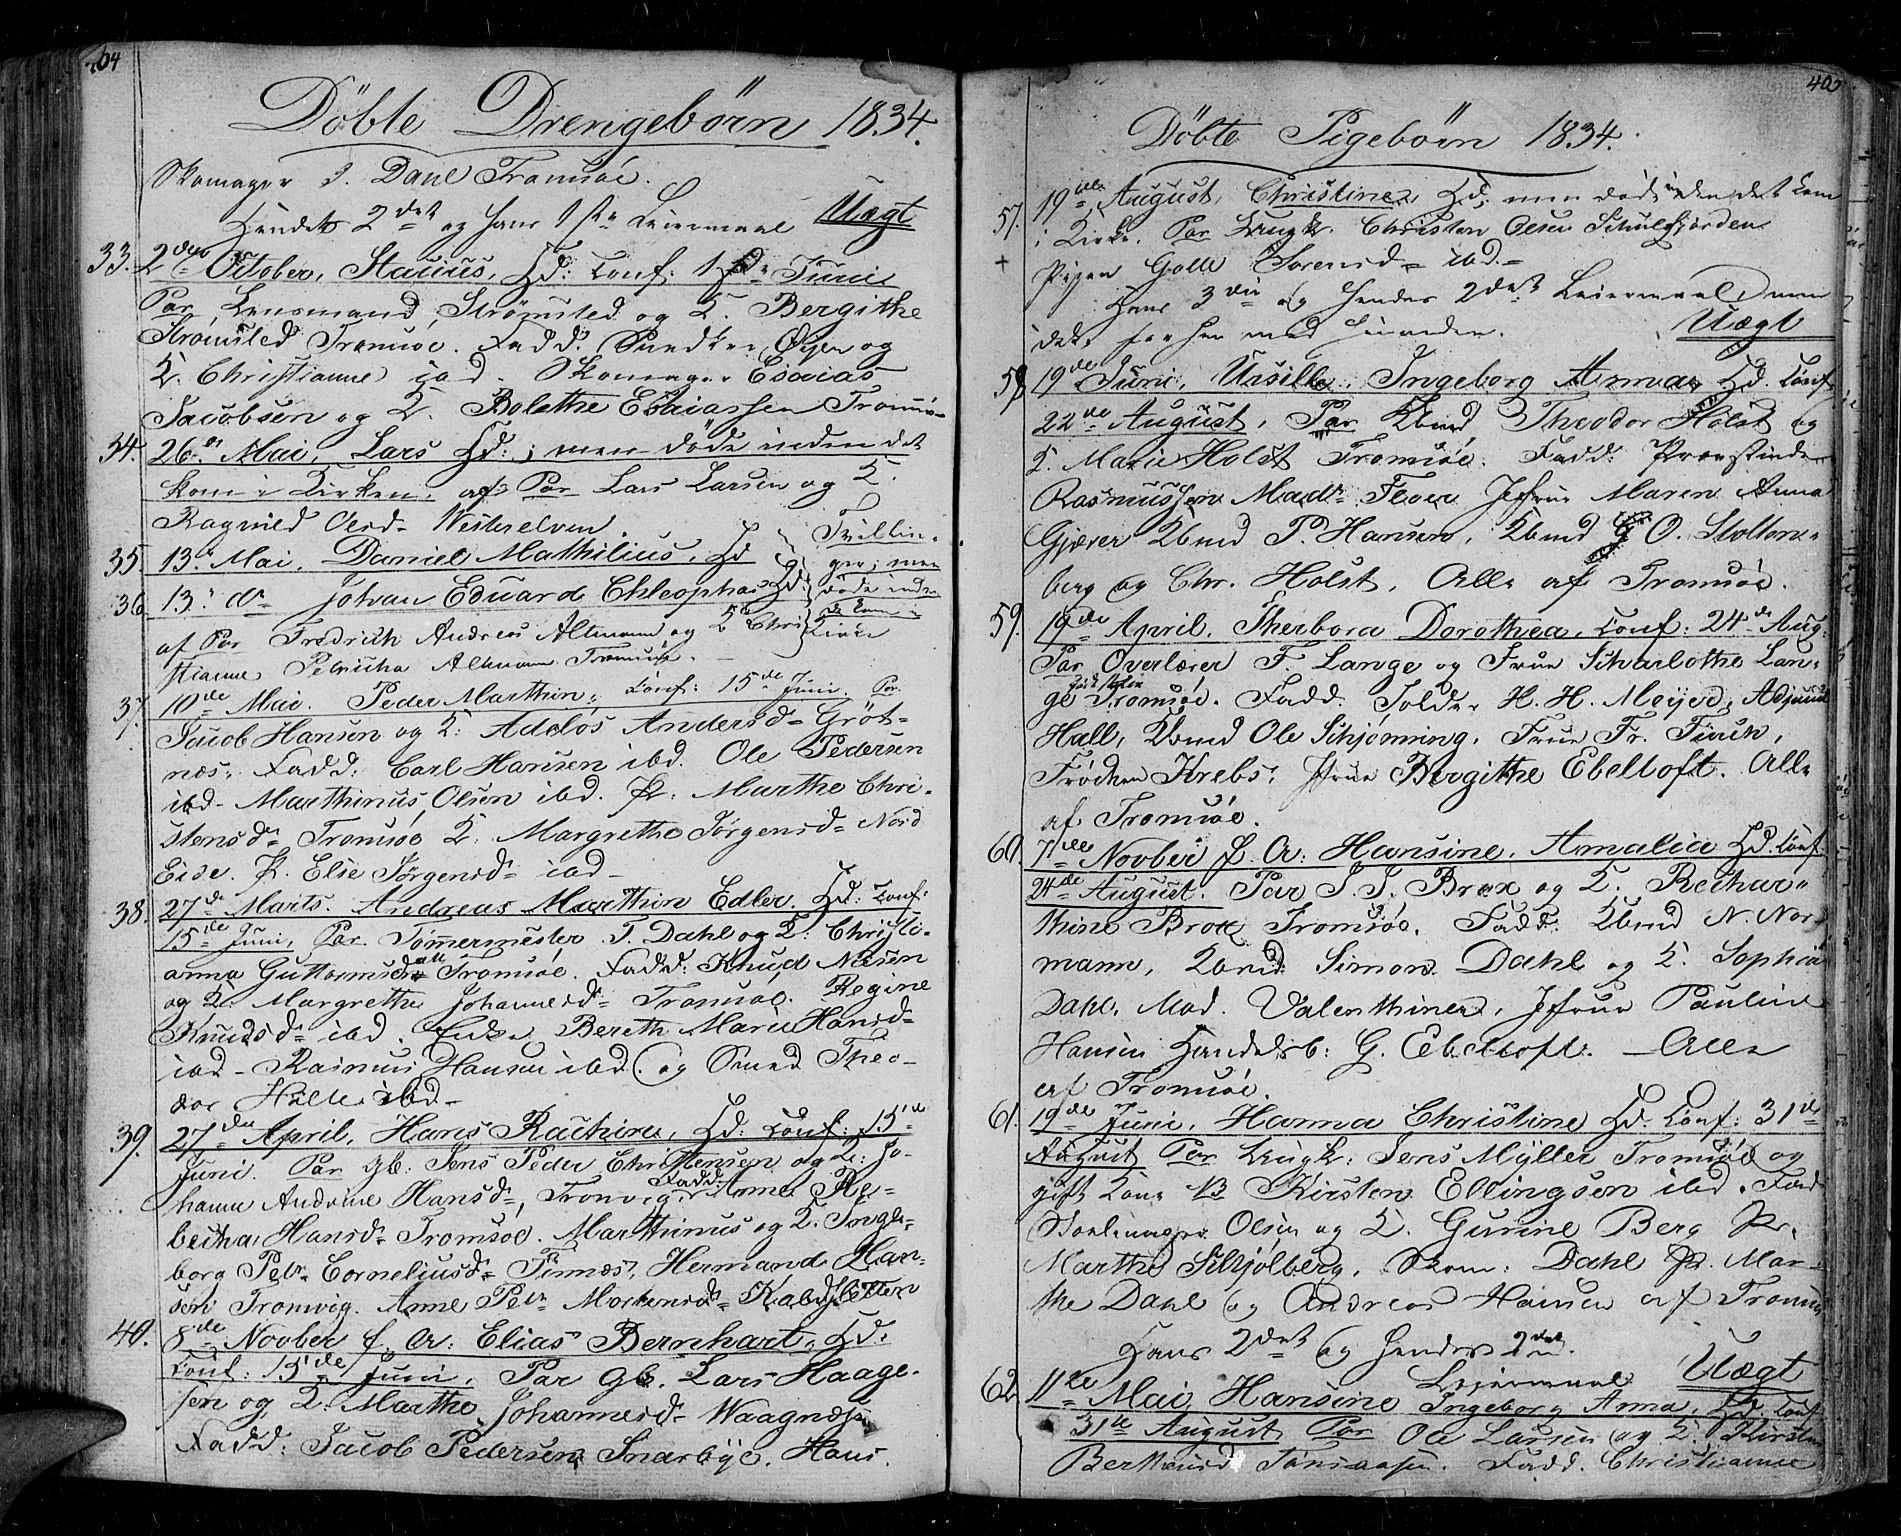 404
Döbte Drengebörn 1834.
Skomager J. Dahl Tromsöe.
Hendes 2det og hans 1ste Leiermaal Uægt
33. 2den October, Stacius, Hd: Conf: 1ste Juni
Par Lensmand Strömsted og K. Bergithe
Strömsted Tromsöe. Fadd: Snedker Öyen og
K. Christianne ibd. Skomager Esaias
Jacobsen og K. Bolethe Esaiassen Tromsöe
34. 26. Mai, Lars Hd: ; men döde inden det
kom i Kirken, af Par Lars Larsen og K.
Ragnild Olesd- Westerelven.
35. 13. Mai. Daniel Mathilius, Hd
36. 13. do Johan Eduard Chleophas Hd:
Tvillin-
ger; men
döde inden
de kom i
Kirke
af Par Fredrich Andreas Altmann og K. Chri-
stianne Petricha Altmann Tromsöe. -
37. 10de Mai. Peder Marthin, Conf: 15de Juni. Par
Jacob Hansen og K: Adelos Andersd- Gröt-
næs. Fadd: Carl Hansen ibd. Ole Pedersen
ibd- Marthinus Olsen ibd. P: Marthe Chri-
stensd- Tromsöe K. Margrethe Jörgensd- Nord
Eide. P. Else Jörgensd- ibd-
38. 27de Marts. Andreas Marthin Edler. Hd: Conf:
15de Juni, Par Tömmermester T. Dahl og K: Christi-
anna Guttormsd- Tromsöe. Fadd: Knud Nilsen
og K. Margrethe Johannesd- Tromsöe. Regine
Knudsd- ibd. Enke Bereth Marie Hansd-
ibd- Rasmus Hansen ibd. og Smed Theo-
dor Halle ibd-
39. 27de April, Hans Rachine, Hd: Conf: 15de
Juni. Par gb: Jens Peder Christensen og K: Jo-
hanna Andrine Hansd-, Tromvig. Fadd: Anne Re-
becha Hansd- Tromsöe. Marthinus og K. Inge-
borg Petr. Corneliusd- Finnæs, Hermand Han-
sen Tromvig. Anne Petr. Mortensd- Kalvsletten
40. 8de Novber f. A: Elias Bernhart, Hd:
Conf: 15de Juni, Par gb. Lars Haage-
sen og K. Marthe Johannesd- Waagnæs.
Fadd: Jacob Pedersen Snarbye. Hans
405
Döbte Pigebörn 1834.
57. 19de August, Christine, Hd; men död inden det kom
i Kirke. Par Ungk. Christen Olsen Schulsfjorden
+ Pigen Golle Sörensd- ibd-
Hans 3die og hendes 2det Leiermaal, men
dette for hen med hinanden. Uægt
58. 19de Juni, Ursille Ingeborg Anna, Hd. Conf.
22de August, Par Kbmd Theodor Holst og
K. Marie Holst Tromsöe. Fadd: Provstinde
Rasmussen Mad. Floer Jfrue Maren Anna
Gjæver Kbmd P. Hansen, Kbmd O. Stolten-
berg og Chr. Holst, Alle af Tromsöe.
59. 19de April. Therbora Dorothea, Conf: 24de Aug:
Par Overlærer F. Lange og Frue Scharlothe Lan-
ge Tromsöe. Fadd: Tolder H. H. Meyer, Adjunct
Hall, Kbmd Ole Schjönning, Frue Fr. Finck,
Fröken Krebs, Jfrue Bergithe Ebeltoft. Alle
af Tromsöe.
60. 7de Novber f. A: Hansine, Amalia Hd. Conf.
24de August. Par J. J. Brox og K. Rechar-
thine Brox Tromsöe. Fadd. Kbmd N. Nor-
mann, Kbmd: Simon Dahl og K. Sophia
Dahl. Mad. Valenthiner, Jfrue Pauline
Hansen Handelsb: G. Ebeltoft. - Alle
af Tromsöe.
61. 19de Juni, Hanna Christine Hd. Conf: 31de
August Par Ungk: Jens Myller Tromsöe og
gift Kone NB Kirsten Ellingsen ibd. Fad.
Olsen og K. Gurine Berg P.
Marthe Schjölberg. Skom: Dahl P. Mar-
the Dahl og Andreas Hansen af Tromsöe
Hans 2det og hendes 2det
Leiermaal Uægt
62. 11te Mai Hansine Ingeborg Anna, Hd. Conf.
31te August Par Ole Larsen og K. Kirsten
Berthensd Tönsaasen. Fadd. Christianne